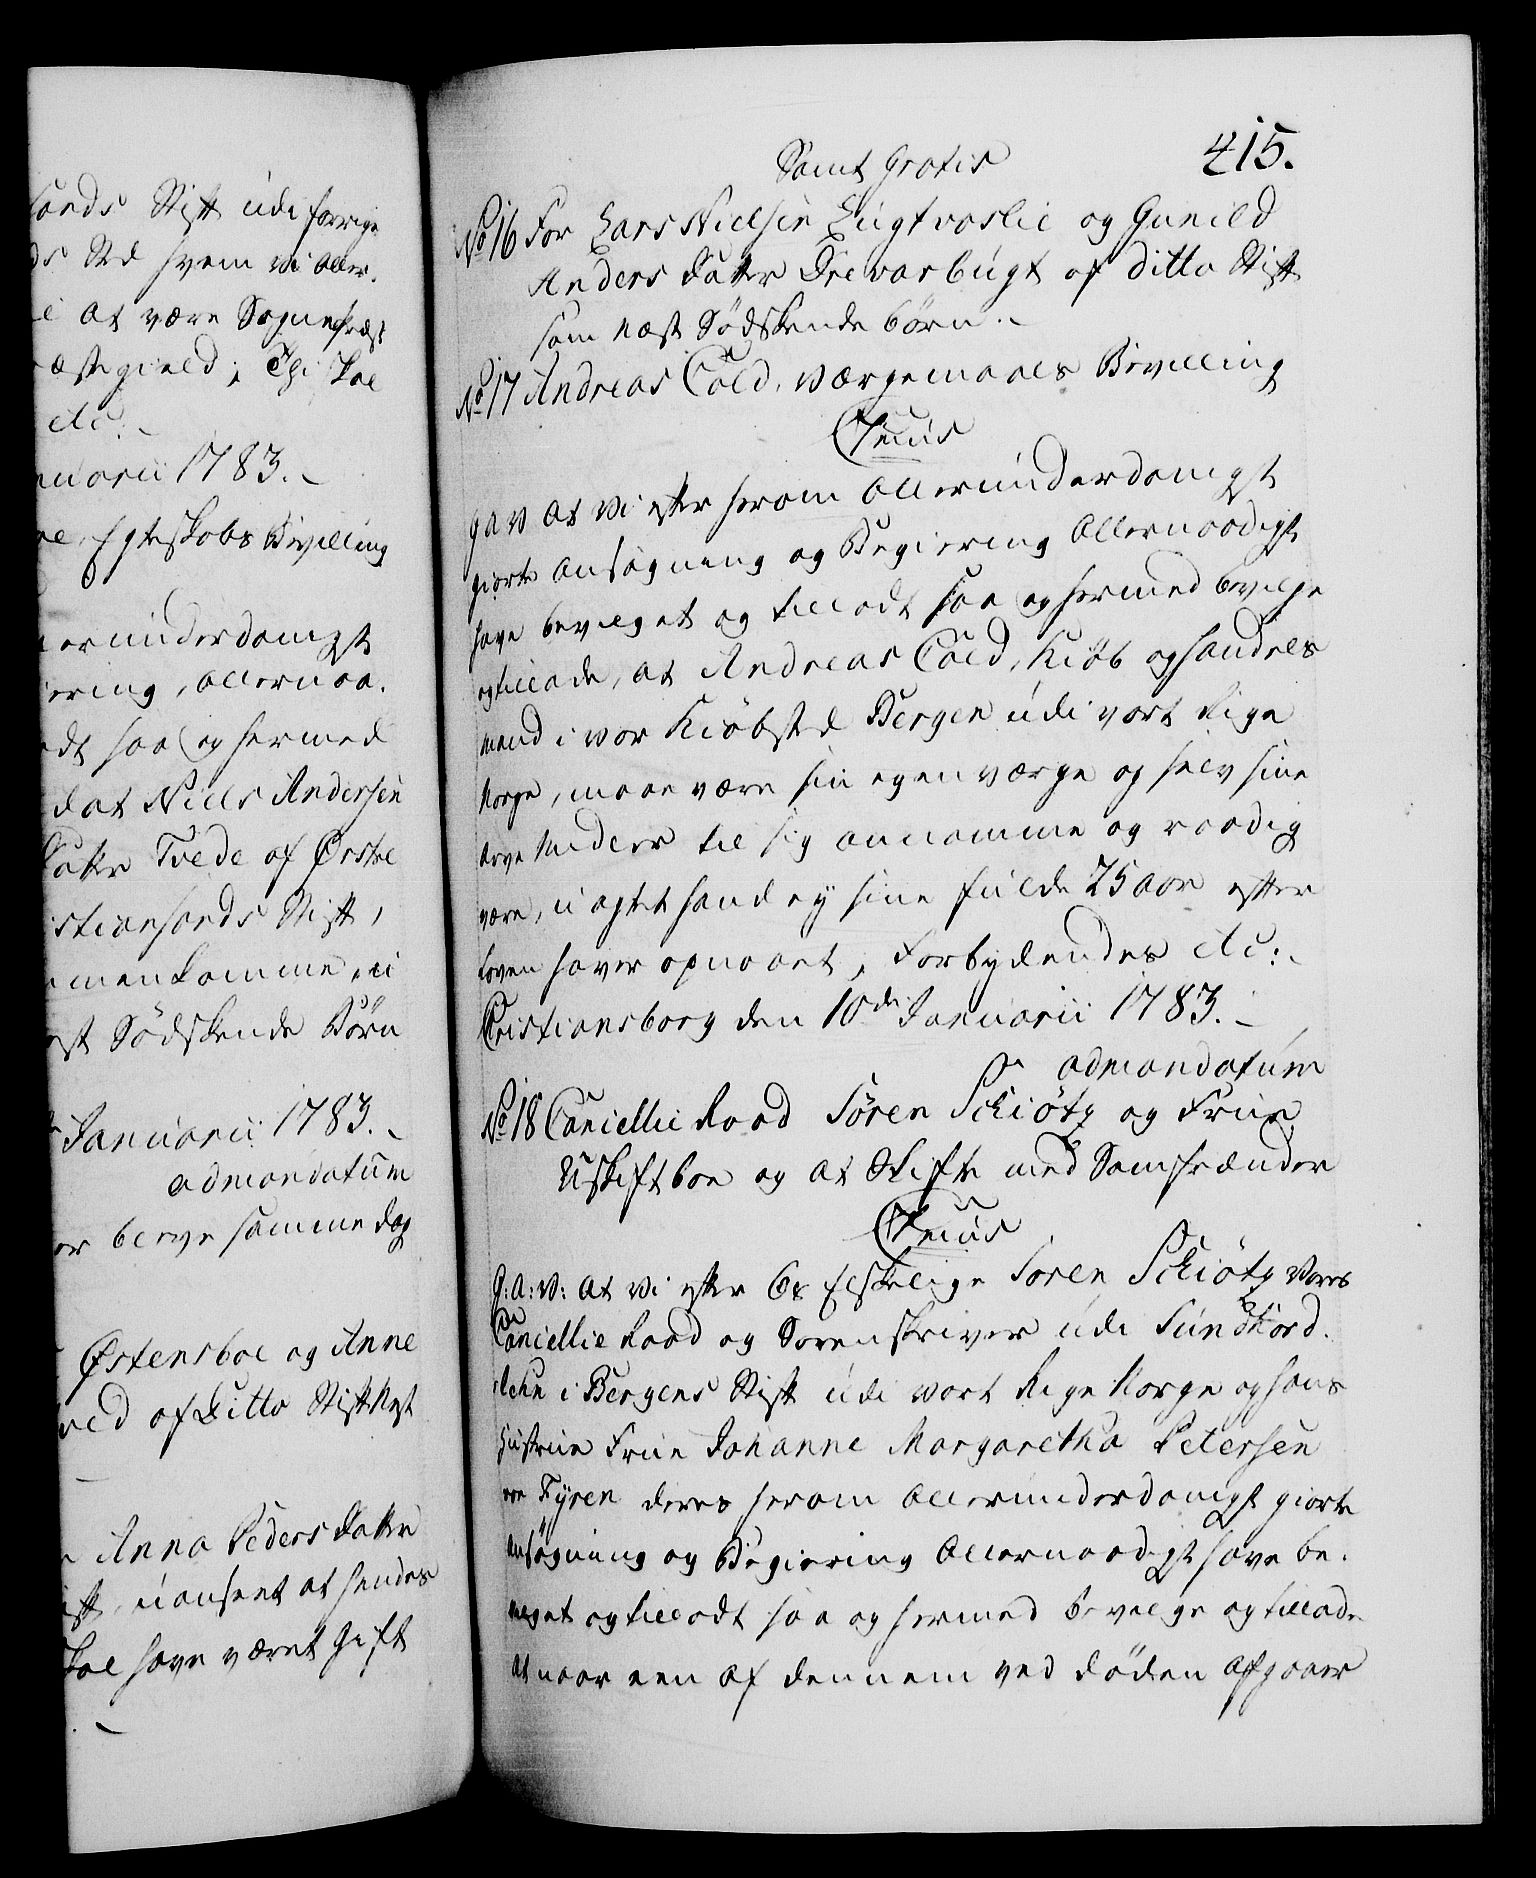 sands Stift udi forrige
Sted hvem vi Aller-
at være Sognepræst
æstegield; Thi skal
etc:
nuarii 1783.
Egteskabs Bevilling
erunderdanigst
iering, allernaa-
adt saa og hermed
dat Niels Andersen
Datter Tvede af Østre
istiansands Stift,
menkomme, u
st Sødskende Børn
Januarii 1783.
ad mandatum
samme dag
Østensboe og Anne
af Ditto Stift Nest
Anna Peders Datter
uanseet at hendes
skal have været gift
415.
Samt Gratis
No 16 For Lars Nielsen Lugtvaslie og Gunild
Anders Datter Drevarbugt af ditto Stift
som næst Sødskende børn.
No 17 Andreas Cold, Værgemaals Bevilling
C 7mus
G A V At Vi efter herom Allerunderdanigst
giorte Ansøgning og Begiering Allernaadigst
have bevilget og tilladt saa og hermed bevilge
og tillade, at Andreas Cold, Kiøb og handels
mand i vor Kiøbsted Bergen udi vort Rige
Norge, maae være sin egen værge og selv sine
Arve Midler til sig annamme og raadig
være, uagtet hand ey sine fulde 25 aar efter
loven haver opnaaet, Forbydendes etc:
Christiansborg den 10de Januarii 1783.
ad mandatum
No 18 Cancellie Raad Sören Schiötz og Frue
Uskiftboe og at Skifte med Samfrænder
C 7mus
G: A: V: At Vi efter Os Elskelige Sören Schiötz Vores
Cancellie Raad og Sorenskriver udi Sundhord-
lehn i Bergens Stift udi vort Rige Norge og hans
Hustrue Frue Johanne Margaretha Petersen
Fyren deres herom Allerunderdanigst giorte
Ansøgning og Begiering Allernaadigst have be-
vilget og tilladt saa og hermed bevilge og tillade
at naar een af dennem ved døden afgaaer